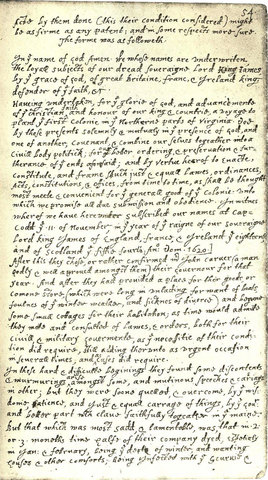 54
first by them done (this their condition considered) might
be as firme as any patent; and in some respects more sure.
The forme was as followeth.
In yͤ name of god Amen. we whose names are underwriten,
the loyall subjects of our dread soveraigne Lord King James
by yͤ grace of god, of great Britaine, franc, & Ireland king,
defender of yͤ faith, &c
Haveing undertaken, for yͤ glorie of god, and advancemente
of yͤ christian faith and honour of our king & countrie, a voyage to
plant yͤ first colonie in yͤ Northerne parts of virginia. Doe
by these presents solemnly & mutualy in yͤ presence of god, and
one of another, covenant, & combine our selves togeather into a
civill body politick; for our better ordering, & preservation & fur=
therance of yͤ ends aforesaid; and by vertue hearof to enacte,
constitute, and frame such just & equall lawes, ordinances,
Acts, constitutions, & offices, from time to time, as shall be thought
most meete & convenient for yͤ generall good of yͤ Colonie: unto
which we promise all due submission and obedience. In witnes
wherof we have hereunder subscribed our names at Cap=
Codd yͤ ·11· of November, in yͤ year of yͤ raigne of our soveraigne
Lord king James of England, france, & Ireland yͤ eighteenth
and of Scotland yͤ fiftie fourth. Anͦ: Dom. 1620.
After this they chose, or rather confirmed mʳ John Carver (a man
godly & well approved amongst them) their Governour for that
year. And after they had provided a place for their goods, or
comone store, (which were long in unlading for want of boats,
foulnes of yͤ winter weather, and sicknes of diverce) and begune
some small cottages for their habitation; as time would admitte
they mette and consulted of lawes, & orders, both for their
civill & military Govermente, as yͤ necessitie of their condi=
tion did require, still adding therunto as urgent occasion
in severall times, and cases did require.
In these hard & difficulte beginings they found some discontents
& murmurings amongst some, and mutinous speeches & cariags
in other; but they were soone quelled, & overcome, by yͤ wis=
dome, patience, and just & equall carrage of things, by yͤ Govʳ
and better part wᶜʰ clave faithfully togeather in yͤ maine.
But that which was most sadd, & lamentable, was, that in ·2·
or ·3· moneths time halfe of their company dyed, espetialy
in Jan: & february, being yͤ depth of winter, and wanting
houses & other comforts; being infected with yͤ Scurvie &